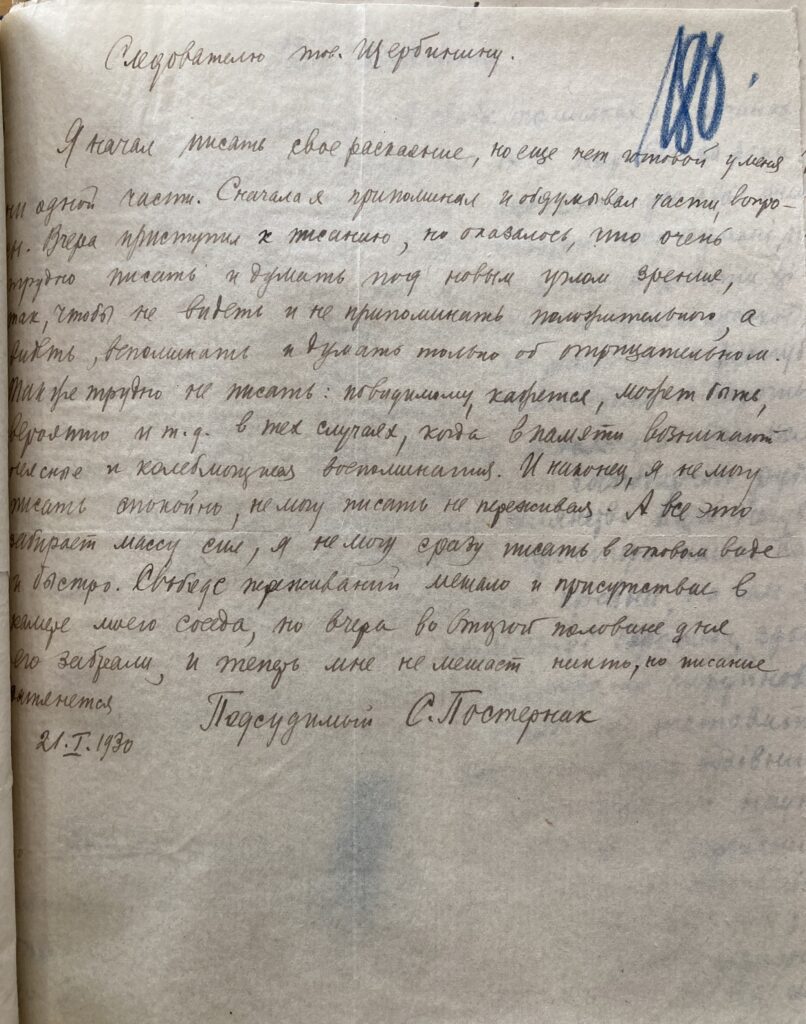 Следователю тов. Щербинину.
180.
Я начал писать свое раскаяние, но еще нет готовой у меня
ни одной части. Сначала я припоминал и обдумывал части, вопро-
Вчера приступил к писанию, но оказалось, что очень
трудно писать и думать под новым углом зрения,
так, чтобы не видеть и не припоминать положительного, а
видеть, вспоминать и думать только об отрицательном.
Также трудно не писать: повидимому, кажется, может быть,
вероятно и т.д. в тех случаях, когда в памяти возникают
неясные и колеблющиеся воспоминания. И наконец, я не могу
писать спокойно, не могу писать не переживая. А все это
забирает массу сил, я не могу сразу писать в готовом виде
и быстро. переживаний мешало и присутствие в
камере моего соседа, но вчера во второй половине дня
его забрали, и теперь мне не мешает никто, но писание
затянется
Подсудимый С. Постернак
21.I.1930